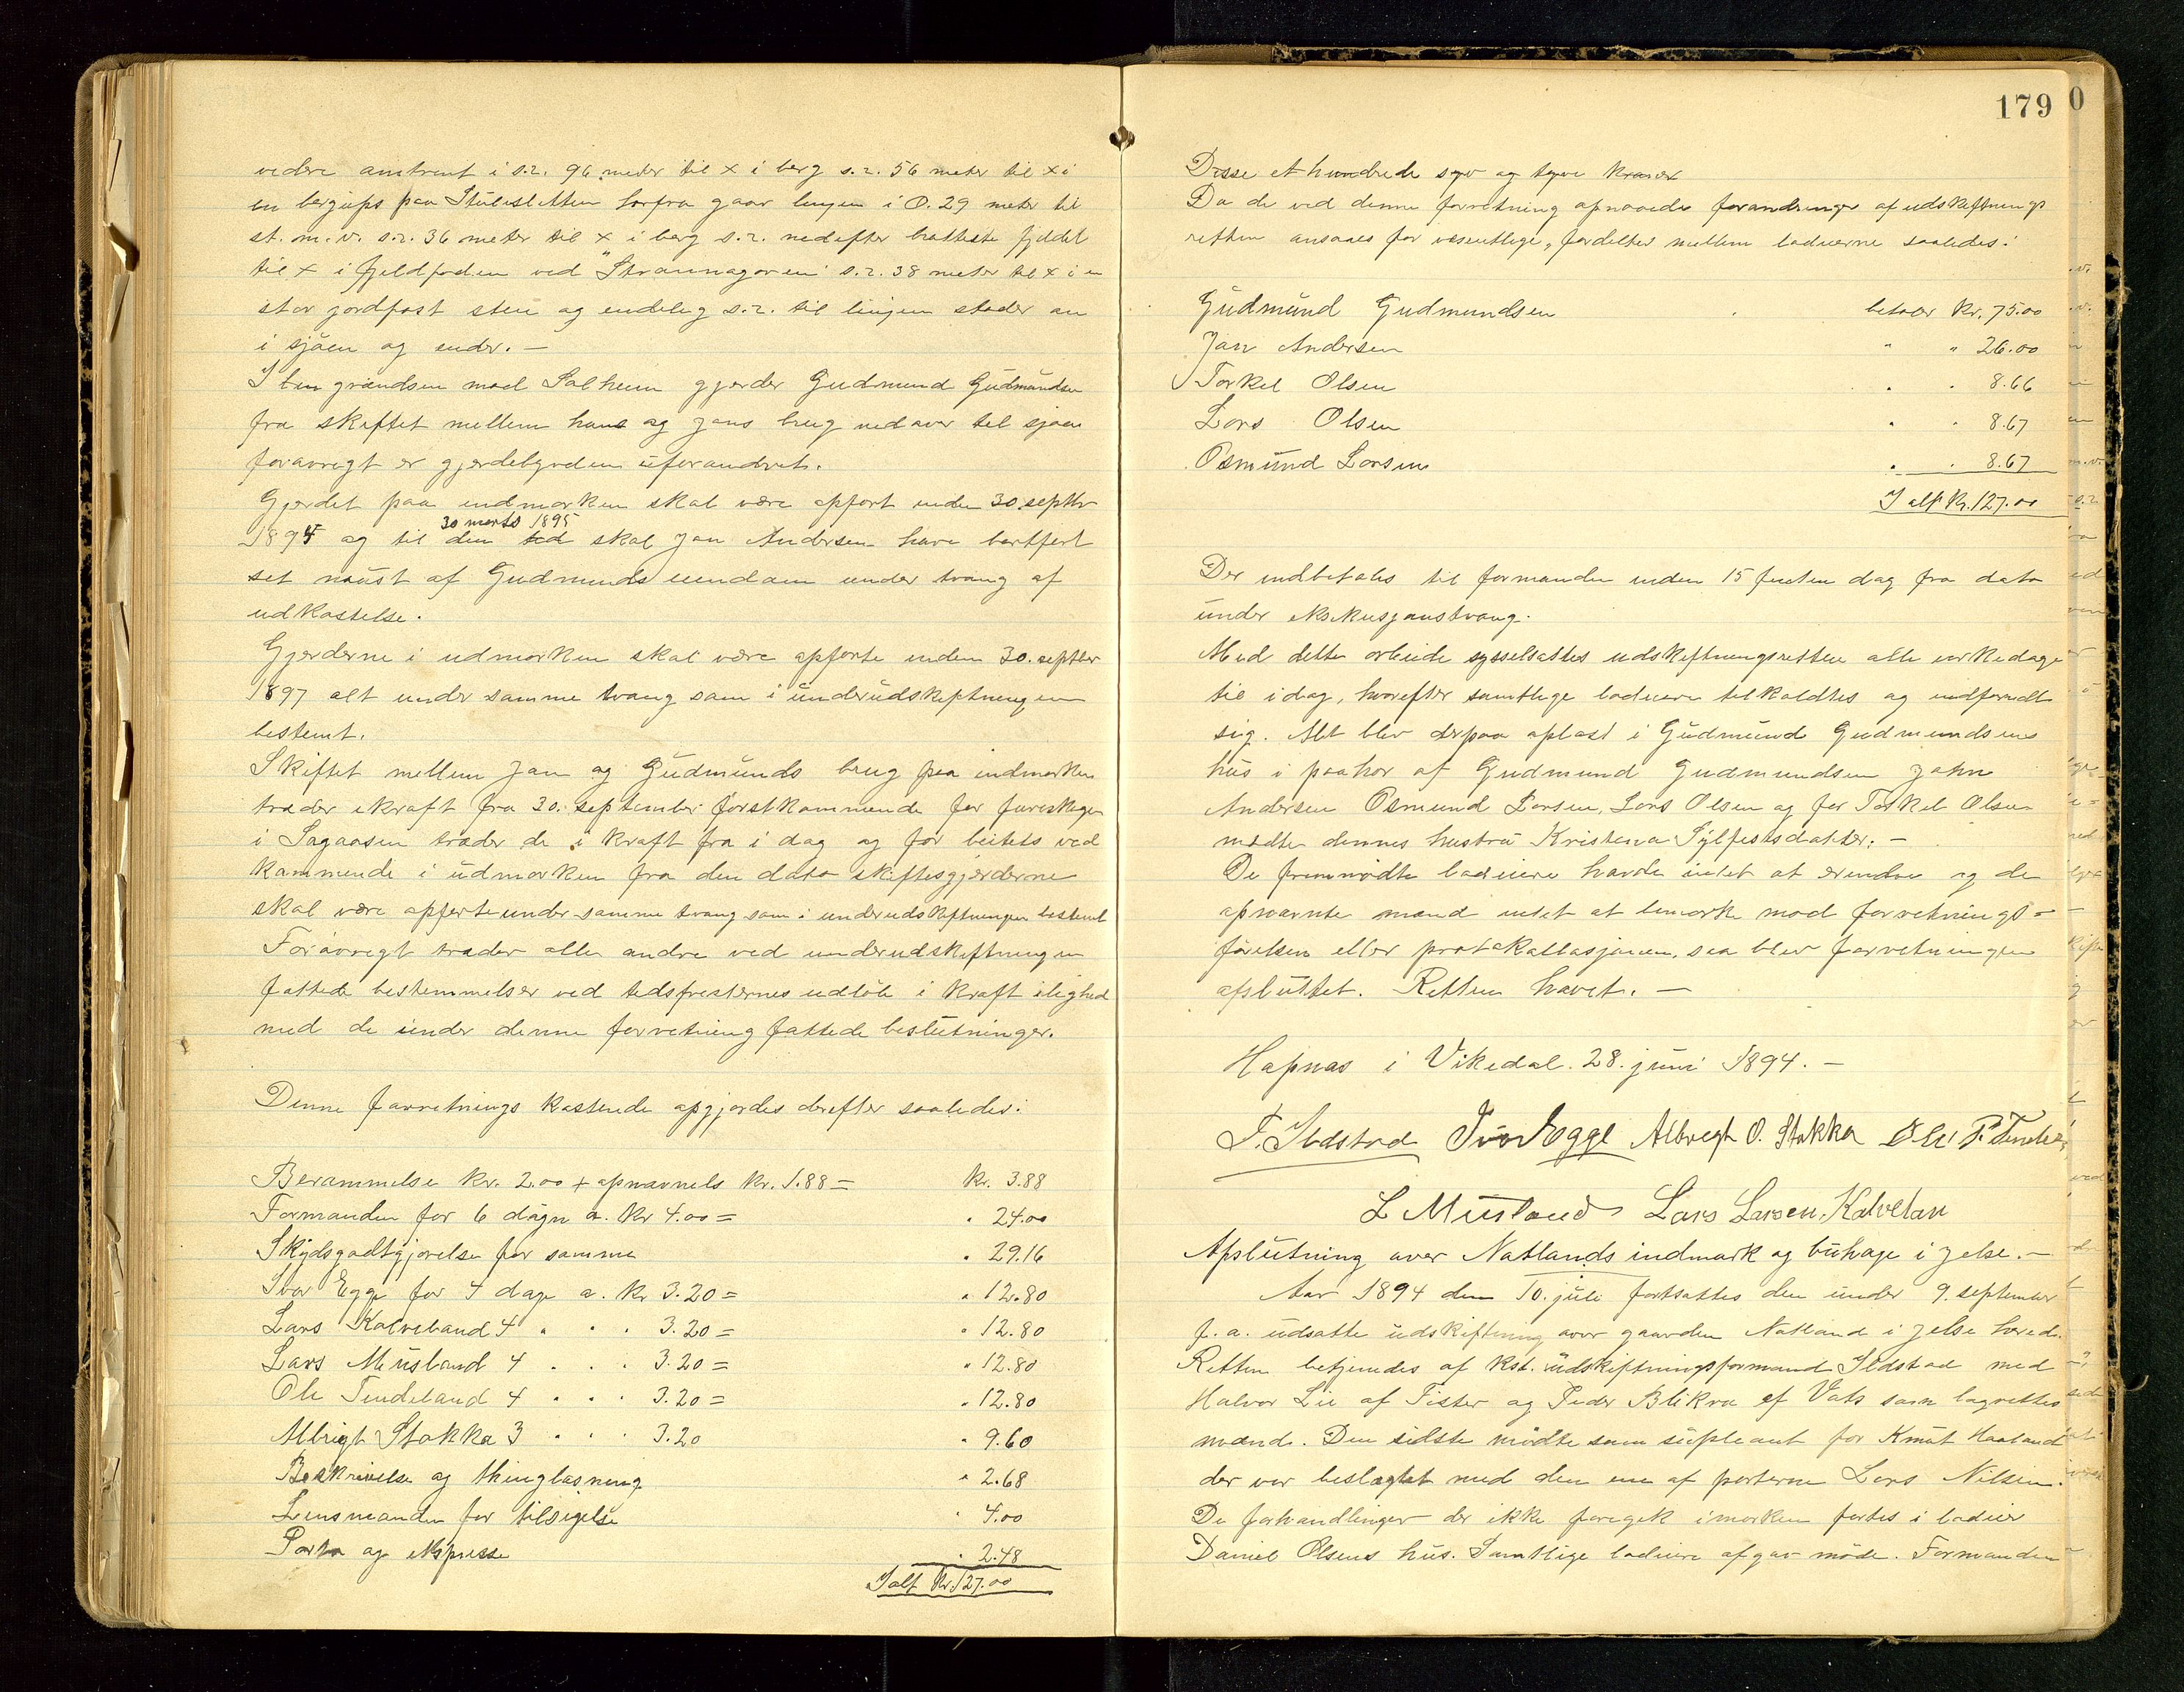 videre omtrent i s.r. 96 meter til x i berg s.r. 56 meter til x i
en bergups paa Stølesletten horfra gaar linjen i O. 29 meter til
st. m. v. s.r. 36 meter til x i berg s.r. nedefter bratteste fjeldet
til x i fjeldfoden ved "Straumagoren" s.r. 38 meter til x i en
stor jordfast sten og endelig s.r. til linjen støder an
i sjøen og ender. —
I grændsen mod Solheim gjerder Gudmund Gudmundsen
fra skiftet mellem hans og Jans brug nedover til sjøen
forøvrigt er gjerdebyrden uforandret.
Gjerdet paa indmarken skal være opført inden 30. septbr
30 marts 1895
1894 og til den tid skal Jan Andersen have bortført
set nøust af Gudmunds eiendom under tvang af
udkastelse.
Gjerderne i udmarken skal være opførte inden 30. septbr
1897 alt under samme tvang som i underudskiftningen
bestemt.
Skiftet mellem Jan og Gudmunds brug paa indmarken
træder ikraft fra 30. september førstkommende for fureskogen
i Sagaasen træder de i kraft fra i dag og for beitets ved
kommende i udmarken fra den dato skiftesgjerderne
skal være opførte under samme tvang som i underudskiftningen bestemt
Forøvrigt træder alle andre ved underudskiftningen
fattede bestemmelser ved tidsfristernes udløb i kraft ilighed
med de under denne forretning fattede beslutninger.
Denne forretnings kostende opgjordes derefter saaledes:
Berammelse kr. 2.00 + opnævnels kr. 1.88 = kr. 3.88
Formanden for 6 døgn a. kr 4.00 = " 24.00
Skydsgodtgjørelse for samme " 29.16
Ivar Egge for 4 dage a. kr 3.20 = " 12.80
Lars Kalveland 4 " " " 3.20 = " 12.80
Lars Musland 4 " " " 3.20 = " 12.80
Ole Tendeland 4 " " " 3.20 = " 12.80
Albrigt Stokka 3 " " " 3.20 " 9.60
Beskrivelse og thinglæsning " 2.68
Lensmanden for tilsigelse " 4.00
Porto og ekspresse " 2.48
Ialt kr. 127.00
179
Disse et hundrede syv og tyve kroner
Da de ved denne forretning opnaaede forandringer af udskiftnings
retten ansaaes for væsentlige, fordeltes mellem lodeierne saaledes:
Gudmund Gudmundsen betaler kr. 75.00
Jan Andersen " " 26.00
Torkel Olsen " " 8.66
Lars Olsen " " 8.67
Osmund Larsen " " 8.67
I alt kr. 127.00
Der indbetales til formanden inden 15 femten dag fra dato
under eksekusjonstvang.
Med dette arbeide sysselsattes udskiftningsretten alle virkedage
til idag, hvorefter samtlige lodeiere tilkaldtes og indfandt
sig. Alt blev derpaa oplæst i Gudmund Gudmundsens
hus i paahør af Gudmund Gudmundsen John
Andersen Osmund Larsen, Lars Olsen og for Torkel Olsen
mødte dennes hustru Kristena Sylfestsdatter. —
De fremmødte lodeiere havde intet at erindre og de
opnævnte mænd intet at bemærke mod forretnings-
førelsen eller protokollasjonen, saa blev forretningen
afsluttet. Retten hævet. —
Hapnæs i Vikedal. 28. juni 1894. —
T. Ildstad Ivar Egge Albregt O. Stokka Ole P. Tende
L Musland Lars Larsen Kalvelan
Afslutning over Natlands indmark og buhage i Jelse. —
Aar 1894 den 10. juli fortsattes den under 9. september
f. a. udsatte udskiftning over gaarden Natland i Jelse hered.
Retten betjenedes af kst. udskiftningsformand Ildstad med
Halvor Lie af Fister og Peder Blikra af Vats som lagrettes
mænd. Den sidste mødte som supleant for Knut Haaland
der var beslægtet med den ene af parterne Lars Nilsen.
De forhandlinger der ikke foregik i marken førtes i lodeier
Daniel Olsens hus. Samtlige lodeiere afgav møde. Formanden